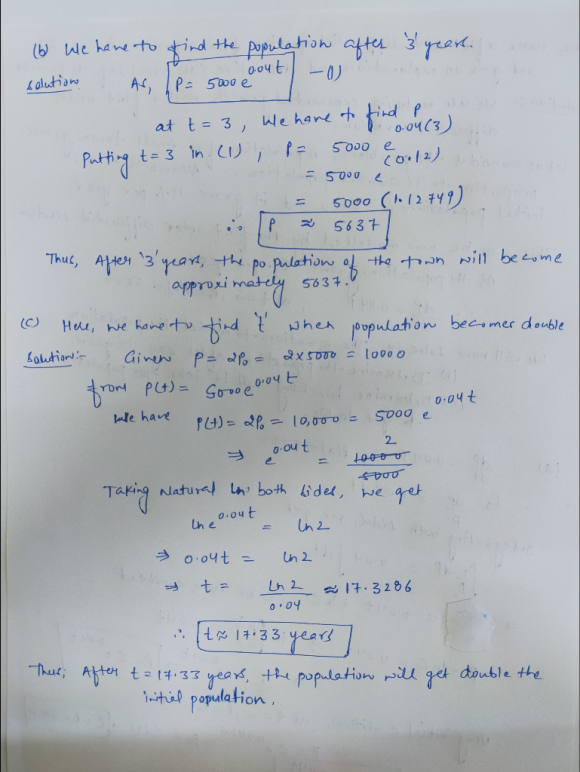 (b) We have to find the population after '3' years.
Solution As, P = 5000 e^0.04t —(1)
at t = 3, We have to find P
Putting t=3 in (1), P = 5000 e^0.04(3)
= 5000 e^(0.12)
= 5000 (1.12749)
∴ P ≈ 5637
Thus, After '3' years, the population of the town will become
approximately 5637.
(c) Here, we have to find 't' when population becomes double
Solution:- Given P = 2P₀ = 2x5000 = 10000
from P(t) = 5000e^0.04t
We have P(t) = 2P₀ = 10,000 = 5000 e^0.04t
⇒ e^0.04t = 10000/5000 2
Taking Natural 'ln' both sides, we get
ln e^0.04t = ln 2
⇒ 0.04t = ln 2
⇒ t = ln 2/0.04 ≈ 17.3286
∴ t ≈ 17.33 years
Thus, After t = 17.33 years, the population will get double the
initial population.